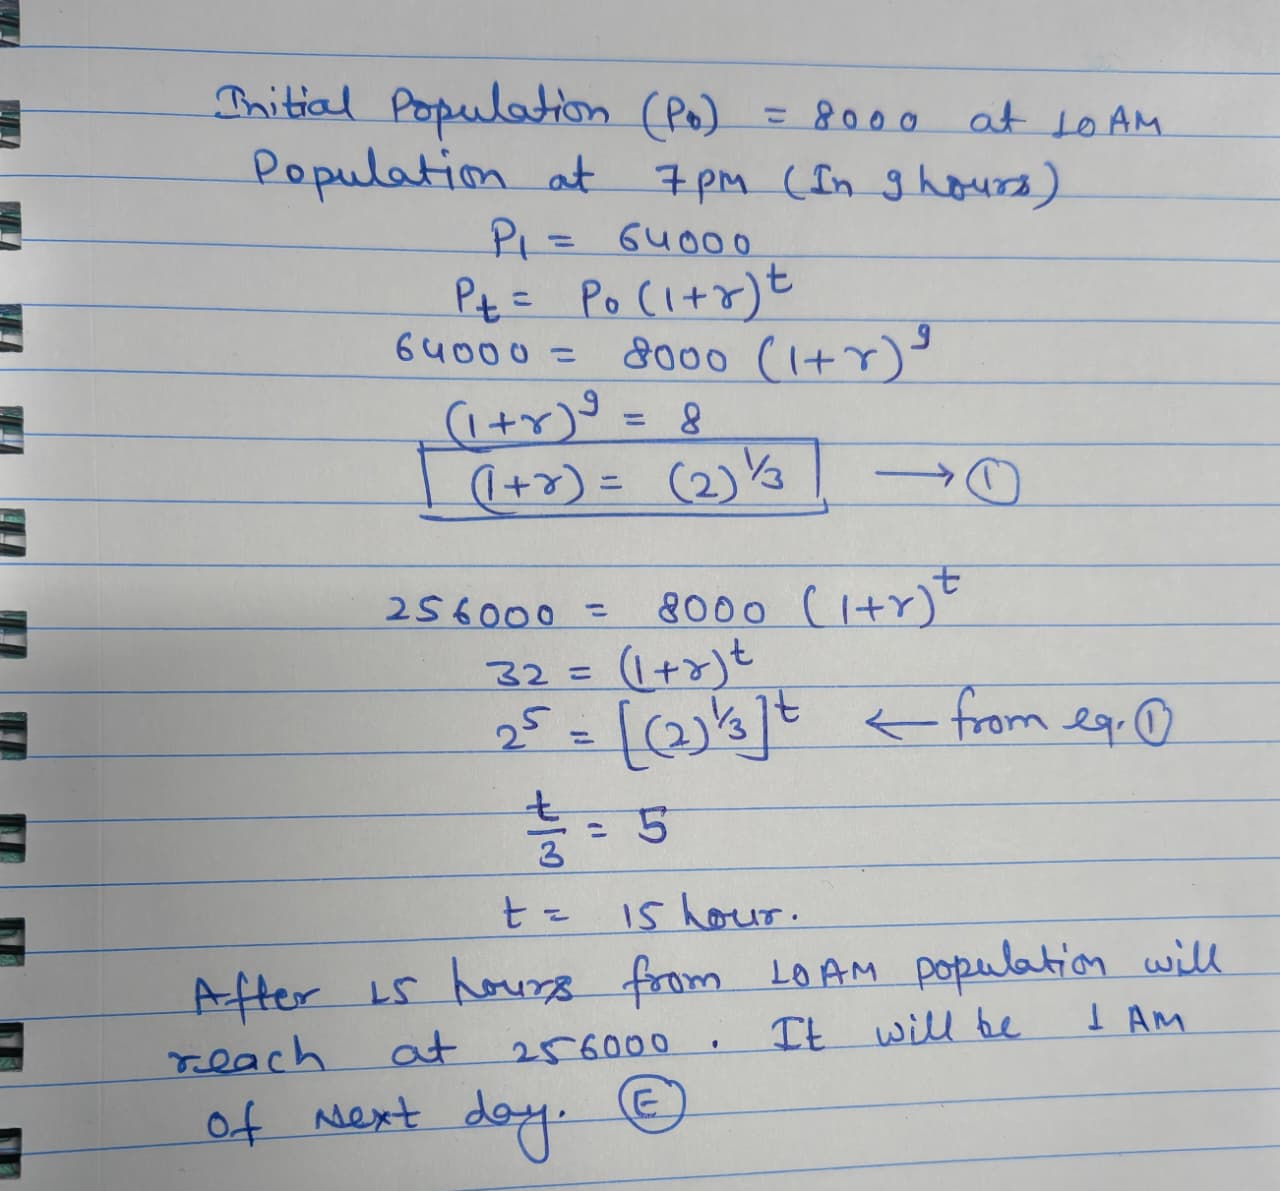 Initial Population (P₀) = 8000 at 10 AM
Population at 7 pm (In 9 hours)
P₁ = 64000
Pₜ = P₀ (1+r)ᵗ
64000 = 8000 (1+r)⁹
(1+r)⁹ = 8
(1+r) = (2)^⅓ → ①
256000 = 8000 (1+r)ᵗ
32 = (1+r)ᵗ
2⁵ = [(2)^⅓]ᵗ ← from eq. ①
t/3 = 5
t = 15 hour.
After 15 hours from 10 AM population will
reach at 256000 . It will be 1 AM
of Next day. Ⓔ